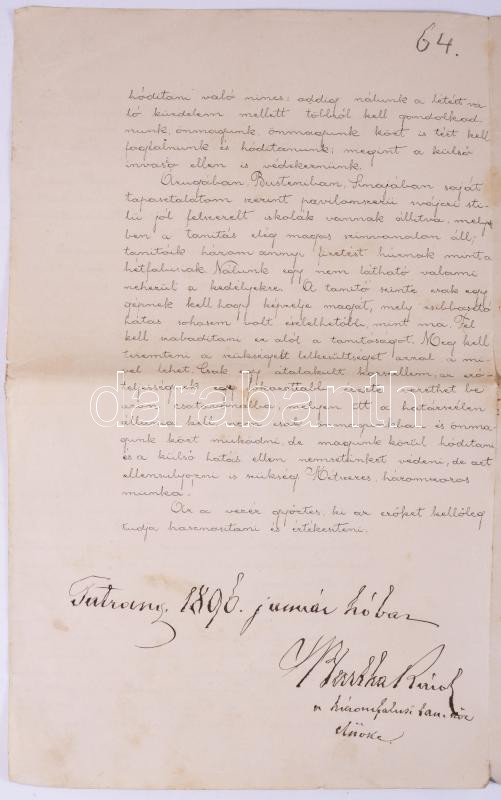 64.
hódítani való nincs: addig nálunk a létért va-
ló küzdelem mellett többről kell gondolkod-
nunk, önmagunk, önmagunk közt is tért kell
foglalnunk és hódítanunk; megint a külső
invasio ellen is védekeznünk.
Azugában, Busteniban, Sinajában saját
tapasztalatom szerint pavilonszerű svájczi sti-
lü jól felszerelt iskolák vannak állítva, melyek
ben a tanítás elég magas színvonalon áll;
tanítóik három annyi fizetést húznak mint a
hétfalusiak. Nálunk egy nem látható valami
nehezül a kedélyekre. A tanító szinte csak egy
gépnek kell hogy képzelje magát, mely zsibbasztó
hatás sohasem volt érzelhetőbb, mint ma. Fel
kell szabadítani ez alól a tanítóságot. Meg kell
teremteni a szükségelt lelkesültséget arral a mi-
vel lehet. Csak egy átalakult körszellem, az erő-
teljességnek egy
azon, melyen itt a határszélen
állania kell, nem csak önmagunkban és önma-
gunk közt működni, de magunk körül hódítani
és a külső hatás ellen nemzetünket védeni, de azt
ellensulyozni is szükség. Kétszeres, háromszoros
munka.
Az a vezér győztes, ki az erőket kellőleg
tudja hasznosítani és értékesíteni.
darabanth
Tatrang, 1896. január hóban
Bartha Károly
a háromfalusi tan. kör
elnöke.